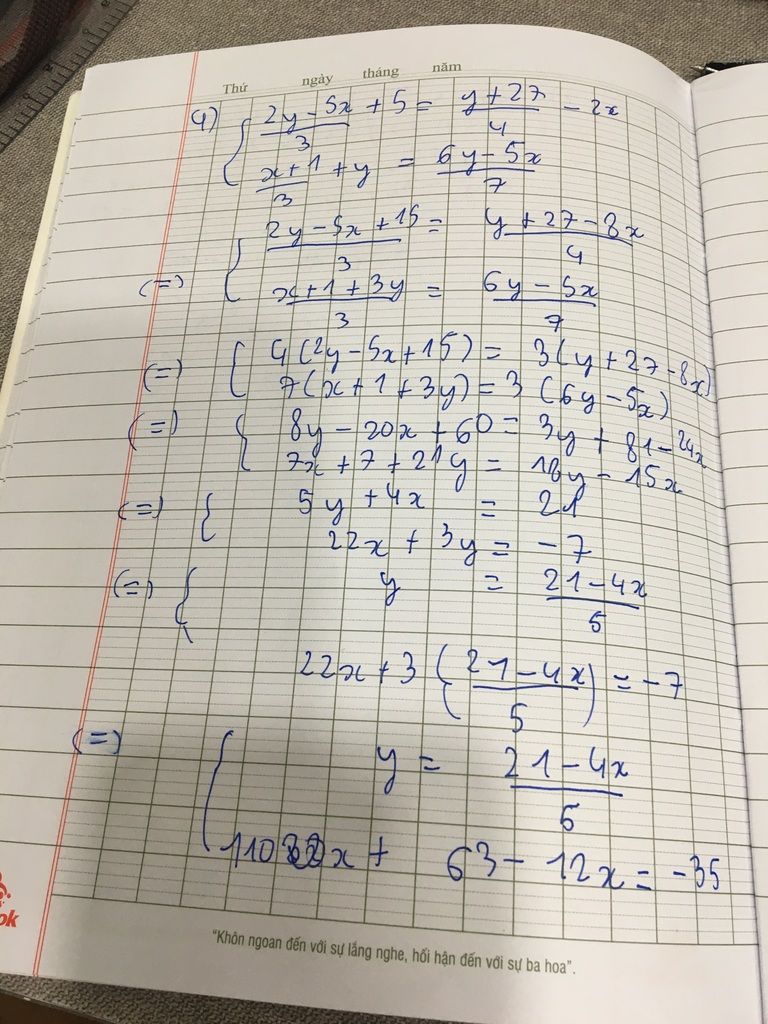 Thứ ngày tháng năm
4) { (2y - 5x)/3 + 5 = (y + 27)/4 - 2x
(x + 1)/3 + y = (6y - 5x)/7
(=) { (2y - 5x + 15)/3 = (y + 27 - 8x)/4
(x + 1 + 3y)/3 = (6y - 5x)/7
(=) { 4(2y - 5x + 15) = 3(y + 27 - 8x)
7(x + 1 + 3y) = 3(6y - 5x)
(=) { 8y - 20x + 60 = 3y + 81 - 24x
7x + 7 + 21y = 18y - 15x
(=) { 5y + 4x = 21
22x + 3y = -7
(=) { y = (21 - 4x)/5
22x + 3((21 - 4x)/5) = -7
(=) { y = (21 - 4x)/5
110x + 63 - 12x = -35
ok
"Khôn ngoan đến với sự lắng nghe, hối hận đến với sự ba hoa".